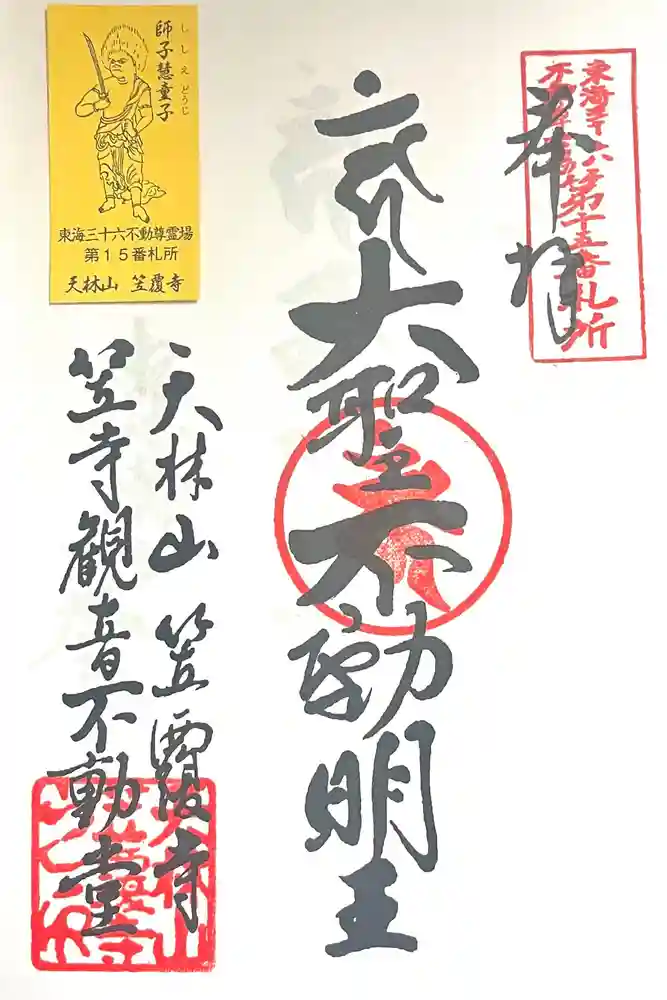 奉拝
東海三十六不動尊第十五番札所
大聖不動明王
天林山 笠覆寺
笠寺観音不動堂
師子慧童子
ししえどうじ
東海三十六不動尊霊場
第15番札所
天林山 笠覆寺